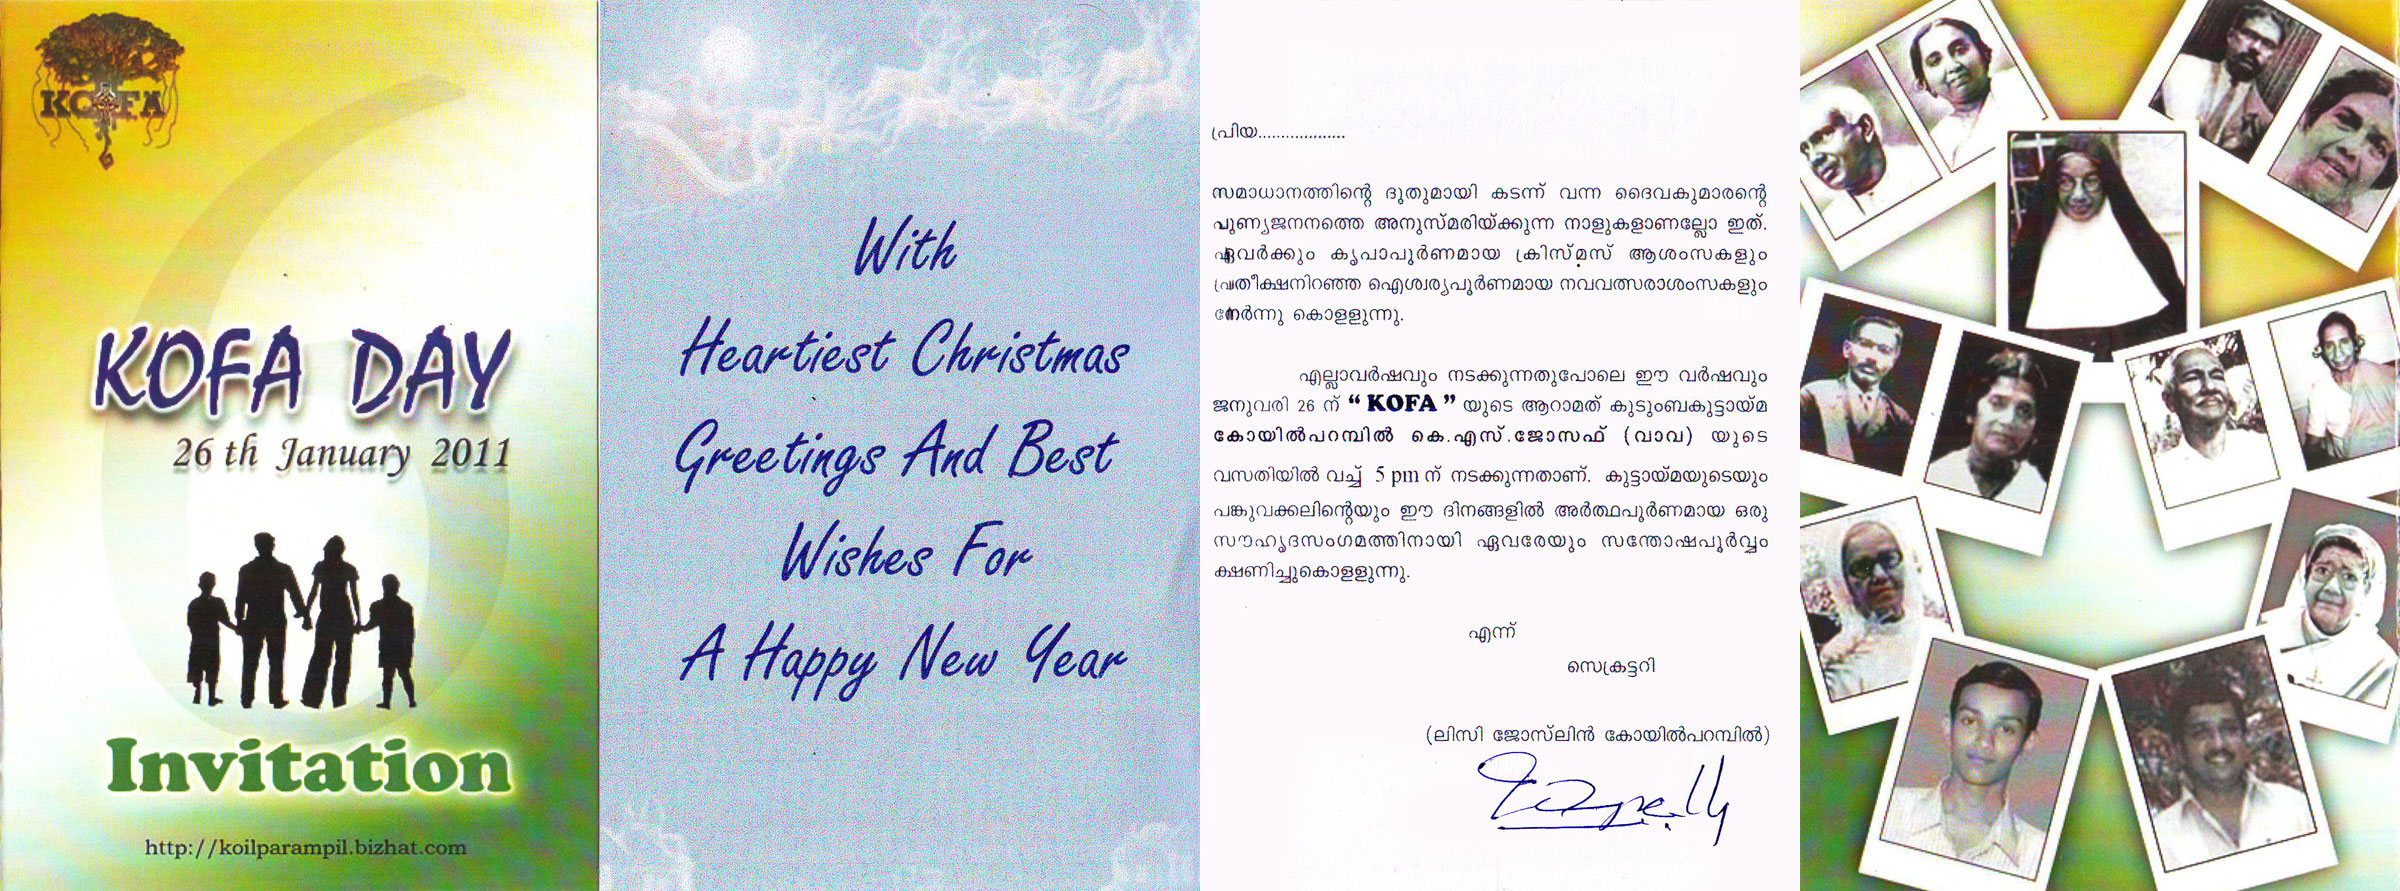 KOFA
KOFA DAY
26 th January 2011
Invitation
http://koilparampil.bizhat.com
With
Heartiest Christmas
Greetings And Best
Wishes For
A Happy New Year
പ്രിയ...................
സമാധാനത്തിന്റെ ദൂതുമായി കടന്ന് വന്ന ദൈവകുമാരന്റെ
പുണ്യജനനത്തെ അനുസ്മരിയ്ക്കുന്ന നാളുകളാണല്ലോ ഇത്.
ഏവർക്കും കൃപാപൂർണമായ ക്രിസ്മസ് ആശംസകളും
പ്രതീക്ഷനിറഞ്ഞ ഐശ്വര്യപൂർണമായ നവവത്സരാശംസകളും
നേർന്നു കൊള്ളുന്നു.
എല്ലാവർഷവും നടക്കുന്നതുപോലെ ഈ വർഷവും
ജനുവരി 26 ന് “ KOFA ” യുടെ ആറാമത് കുടുംബകൂട്ടായ്മ
കോയിൽപറമ്പിൽ കെ.എസ്.ജോസഫ് (വാവ) യുടെ
വസതിയിൽ വച്ച് 5 pm ന് നടക്കുന്നതാണ്. കൂട്ടായ്മയുടെയും
പങ്കുവക്കലിന്റെയും ഈ ദിനങ്ങളിൽ അർത്ഥപൂർണമായ ഒരു
സൗഹൃദസംഗമത്തിനായി ഏവരേയും സന്തോഷപൂർവ്വം
ക്ഷണിച്ചുകൊള്ളുന്നു.
എന്ന്
സെക്രട്ടറി
(ലിസി ജോസ്‌ലിൻ കോയിൽപറമ്പിൽ)